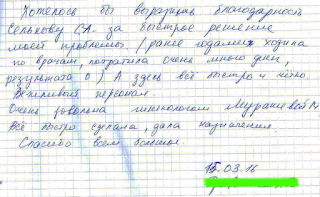 Хотелось бы выразить благодарность
Селькову С.А. за быстрое решение
моей проблемы. (ранее годами ходила
по врачам, потратила очень много денег,
результата 0) А здесь всё быстро и чётко.
Вежливый персонал.
Очень довольна гинекологом
Всё быстро сделала, дала назначения.
Спасибо всем большое.
15.03.16